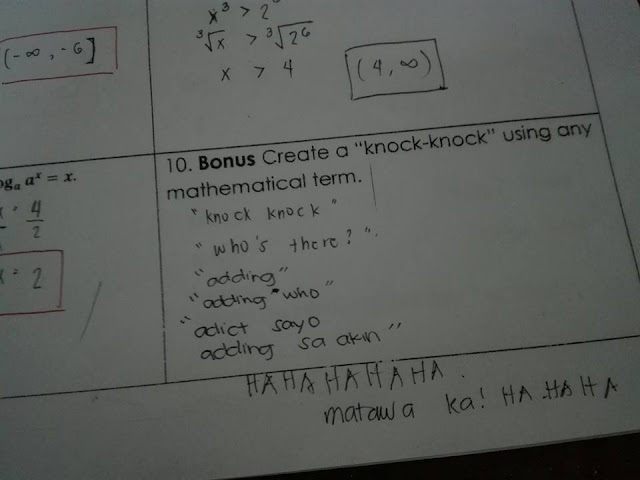 x³ > 2⁶
³√x > ³√2⁶
x > 4
(4, ∞)
(-∞, -6]
logₐ aˣ = x.
4
2
= 2
10. Bonus Create a "knock-knock" using any
mathematical term.
"knock knock"
"who's there?".
"adding"
"adding who"
"adict sayo
adding sa akin"
HAHAHAHAHA.
matawa ka! HA HA HA